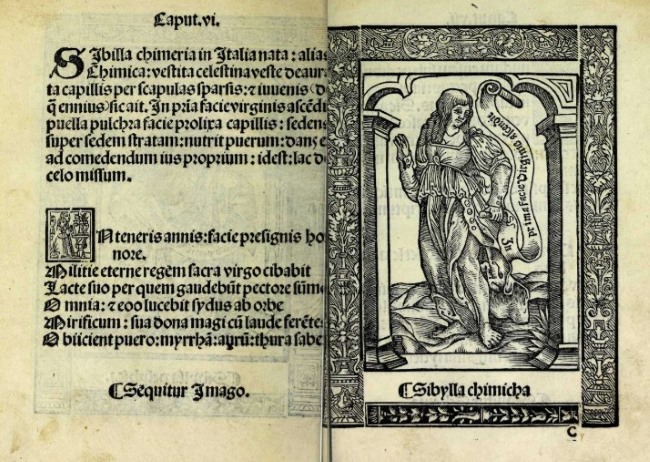 Caput.vi.
SIbilla chimeria in Italia nata: alias
Chimica: vestita celestina veste deaura
ta capillis per scapulas sparsis: ⁊ iuvenis (de
q̄ ennius) sic ait. In pr̄ia facie virginis ascēdit
puella pulchra facie prolixa capillis: sedens
super sedem stratam: nutrit puerum: dans ei
ad comedendum ius proprium: idest: lac de
celo missum.
IN teneris annis: facie presignis ho
nore.
Militie eterne regem sacra virgo cibabit
Lacte suo per quem gaudebūt pectore sūmo
Omnia: ⁊ eoo lucebit sydus ab orbe
Mirificum: sua dona magi cū laude ferētes
Obiicient puero: myrrhā: aurū: thura sabe
¶Sequitur Imago.
In prima facie virginis ascendit
¶Sibylla chimicha
C